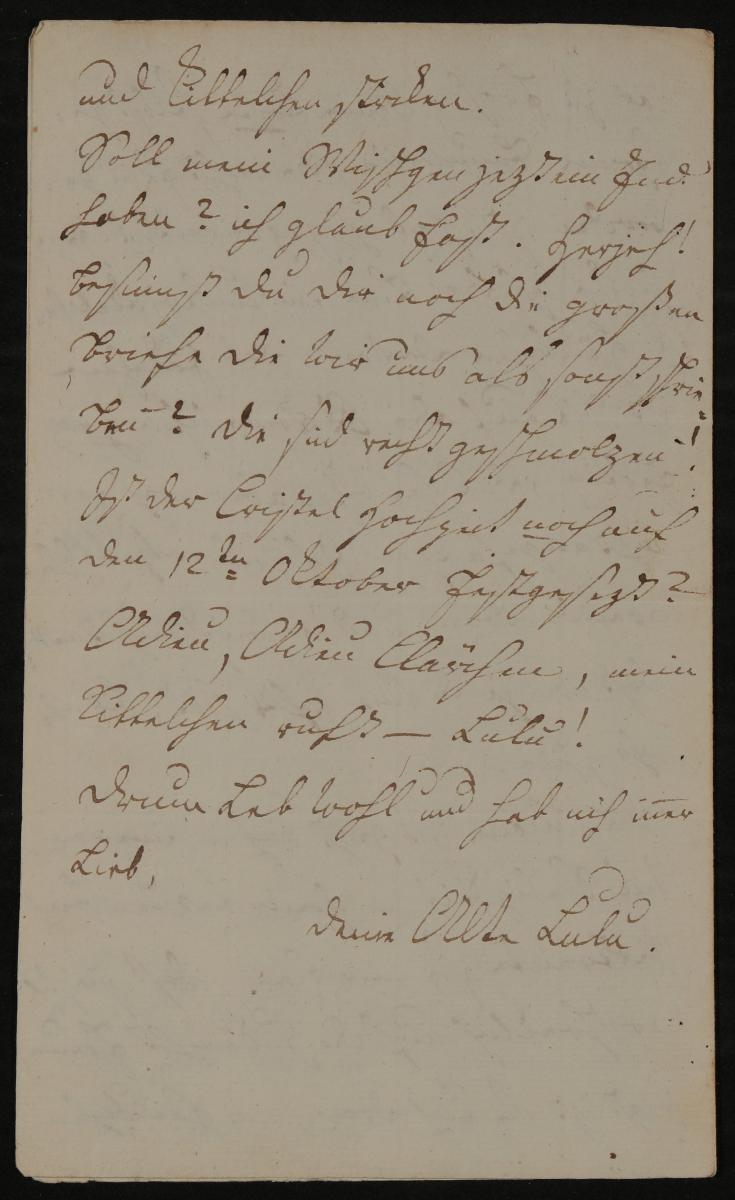 und Kittelchen stricken.
Soll mein Wischgen jezt ein End
haben? ich glaub fast. Herjeh!
besinnst du dir noch die großen
Briefe die wir uns als sonst schrie=
ben? die sind recht geschmolzen!
Ist der Cristel Hochzeit noch auf
den 12ten Oktober festgesezt?
Adieu, Adieu Clärchen, mein
Kittelchen ruft — Lulu!
drum Leb wohl und hab mich imer
Lieb,
deine Alte Lulu.